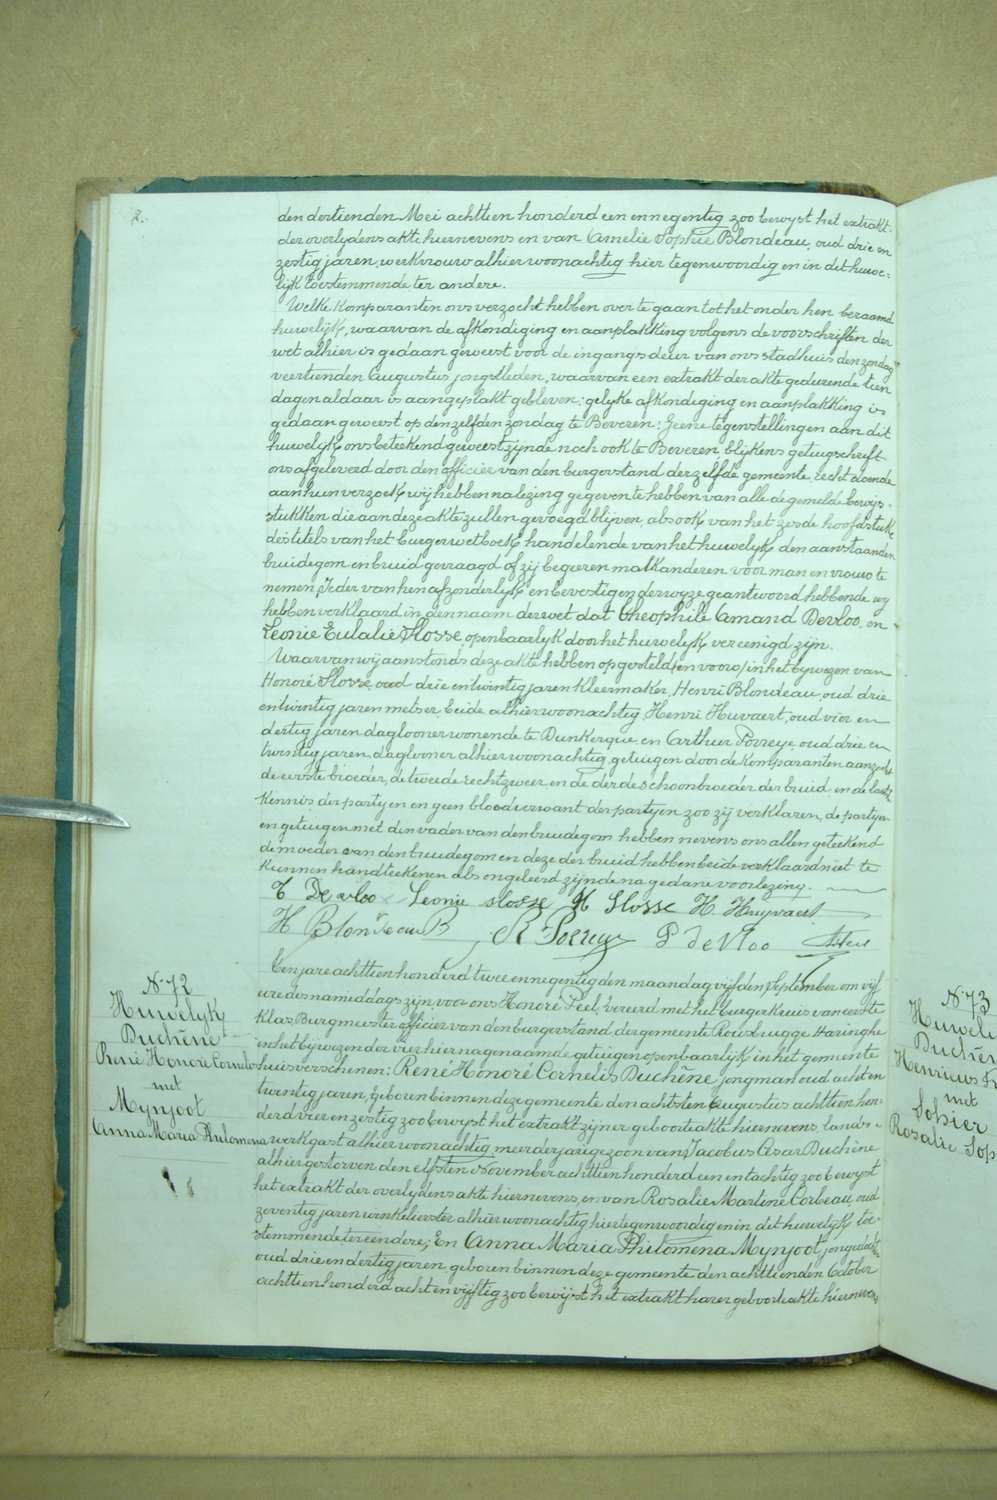 2.
den dertienden Mei achttien honderd een en negentig zoo bewyst het extrakt
der overlydens akte hiernevens en van Amelie Sophie Blondeau, oud drie en
zestig jaren, werkvrouw alhier woonachtig hier tegenwoordig en in dit huwe-
lijk toestemmende ter andere.
Welke komparanten ons verzocht hebben over te gaan tot het onder hen beraamd
huwelijk, waarvan de afkondiging en aanplakking volgens de voorschriften der
wet alhier is gedaan geweest voor de ingangsdeur van ons stadhuis den zondag
veertienden Augustus jongstleden, waarvan een extrakt der akte gedurende tien
dagen aldaar is aangeplakt gebleven; gelyke afkondiging en aanplakking is
gedaan geweest op denzelfden zondag te Beveren: Geene tegenstellingen aan dit
huwelijk ons beteekend geweest zijnde noch ook te Beveren blijkens getuigschrift
ons afgeleverd door den officier van den burgerstand derzelfde gemeente, recht doende
aan hun verzoek wij hebben na lezing gegeven te hebben van alle de gemelde bewys-
stukken die aan deze akte zullen gevoegd blijven, als ook van het zesde hoofdstuk
des titels van het burgerwetboek handelende van het huwelyk den aanstaanden
bruidegom en bruid gevraagd of zij begeeren malkanderen voor man en vrouw te
nemen, Ieder van hen afzonderlyk en bevestigenderwyze geantwoord hebbende wy
hebben verklaard in den naam der wet dat Theophile Amand Devloo en
Leonie Eulalie Slosse, openbaarlyk door het huwelyk vereenigd zijn.
Waarvan wij aanstonds deze akte hebben opgesteld, en voorw/ in het bywezen van
Honoré Slosse, oud drie en twintig jaren kleermaker, Henri Blondeau, oud drie
en twintig jaren metser, beide alhier woonachtig, Henri Huvaert, oud vier en
dertig jaren daglooner wonende te Dunkerque en Arthur Porreye, oud drie en
twintig jaren, daglooner alhier woonachtig, getuigen door de komparanten aanzocht
de eerste broeder, de tweede rechtzweer en de derde schoonbroeder der bruid en de laatste
kennis der partyen en geen bloedverwant der partyen zoo zij verklaren, de partyen
en getuigen met den vader van den bruidegom hebben nevens ons allen geteekend
de moeder van den bruidegom en deze der bruid hebben beide verklaard niet te
kunnen handteekenen als ongeleerd zijnde na gedane voorlezing.
T Devloo Leonie Slosse H Slosse H. Huyvaert
H Blondeau P de Vloo
N. 72
Huwelyk
Duchêne
René Honoré Cornelis
met
Mynjoot
Anna Maria Philomena
Ten jare achttien honderd twee en negentig den maandag vijfden September om vijf
ure des namiddags zijn voor ons Honoré Feel, vereerd met het burgerkruis van eerste
klas Burgmeester officier van den burgerstand der gemeente Rousbrugge Haringhe
en in het bijwezen der vier hiernagenaamde getuigen openbaarlyk in het gemeente
huis verschenen: René Honoré Cornelis Duchêne jongman oud acht en
twintig jaren, geboren binnen deze gemeente den achtsten Augustus achttien hon-
derd vier en zestig zoo bewyst het extrakt zijner geboorteakte hiernevens, lands-
werkgast alhier woonachtig meerderjarige zoon van Jacobus Cesar Duchêne
alhier gestorven den elfsten November achttien honderd een en tachtig zoo bewyst
het extrakt der overlydens akte hiernevens, en van Rosalie Martine Corbeau, oud
zeventig jaren winkelierster alhier woonachtig hier tegenwoordig en in dit huwelyk toe-
stemmende ter eendere; En Anna Maria Philomena Mynjoot, jongedochter
oud drie en dertig jaren geboren binnen deze gemeente den achttienden October
achttien honderd acht en vijftig zoo bewijst het extrakt harer geboorteakte hiernevens
N. 73
Huwely
Duchên
Henricus
met
Sohier
Rosalie Sop